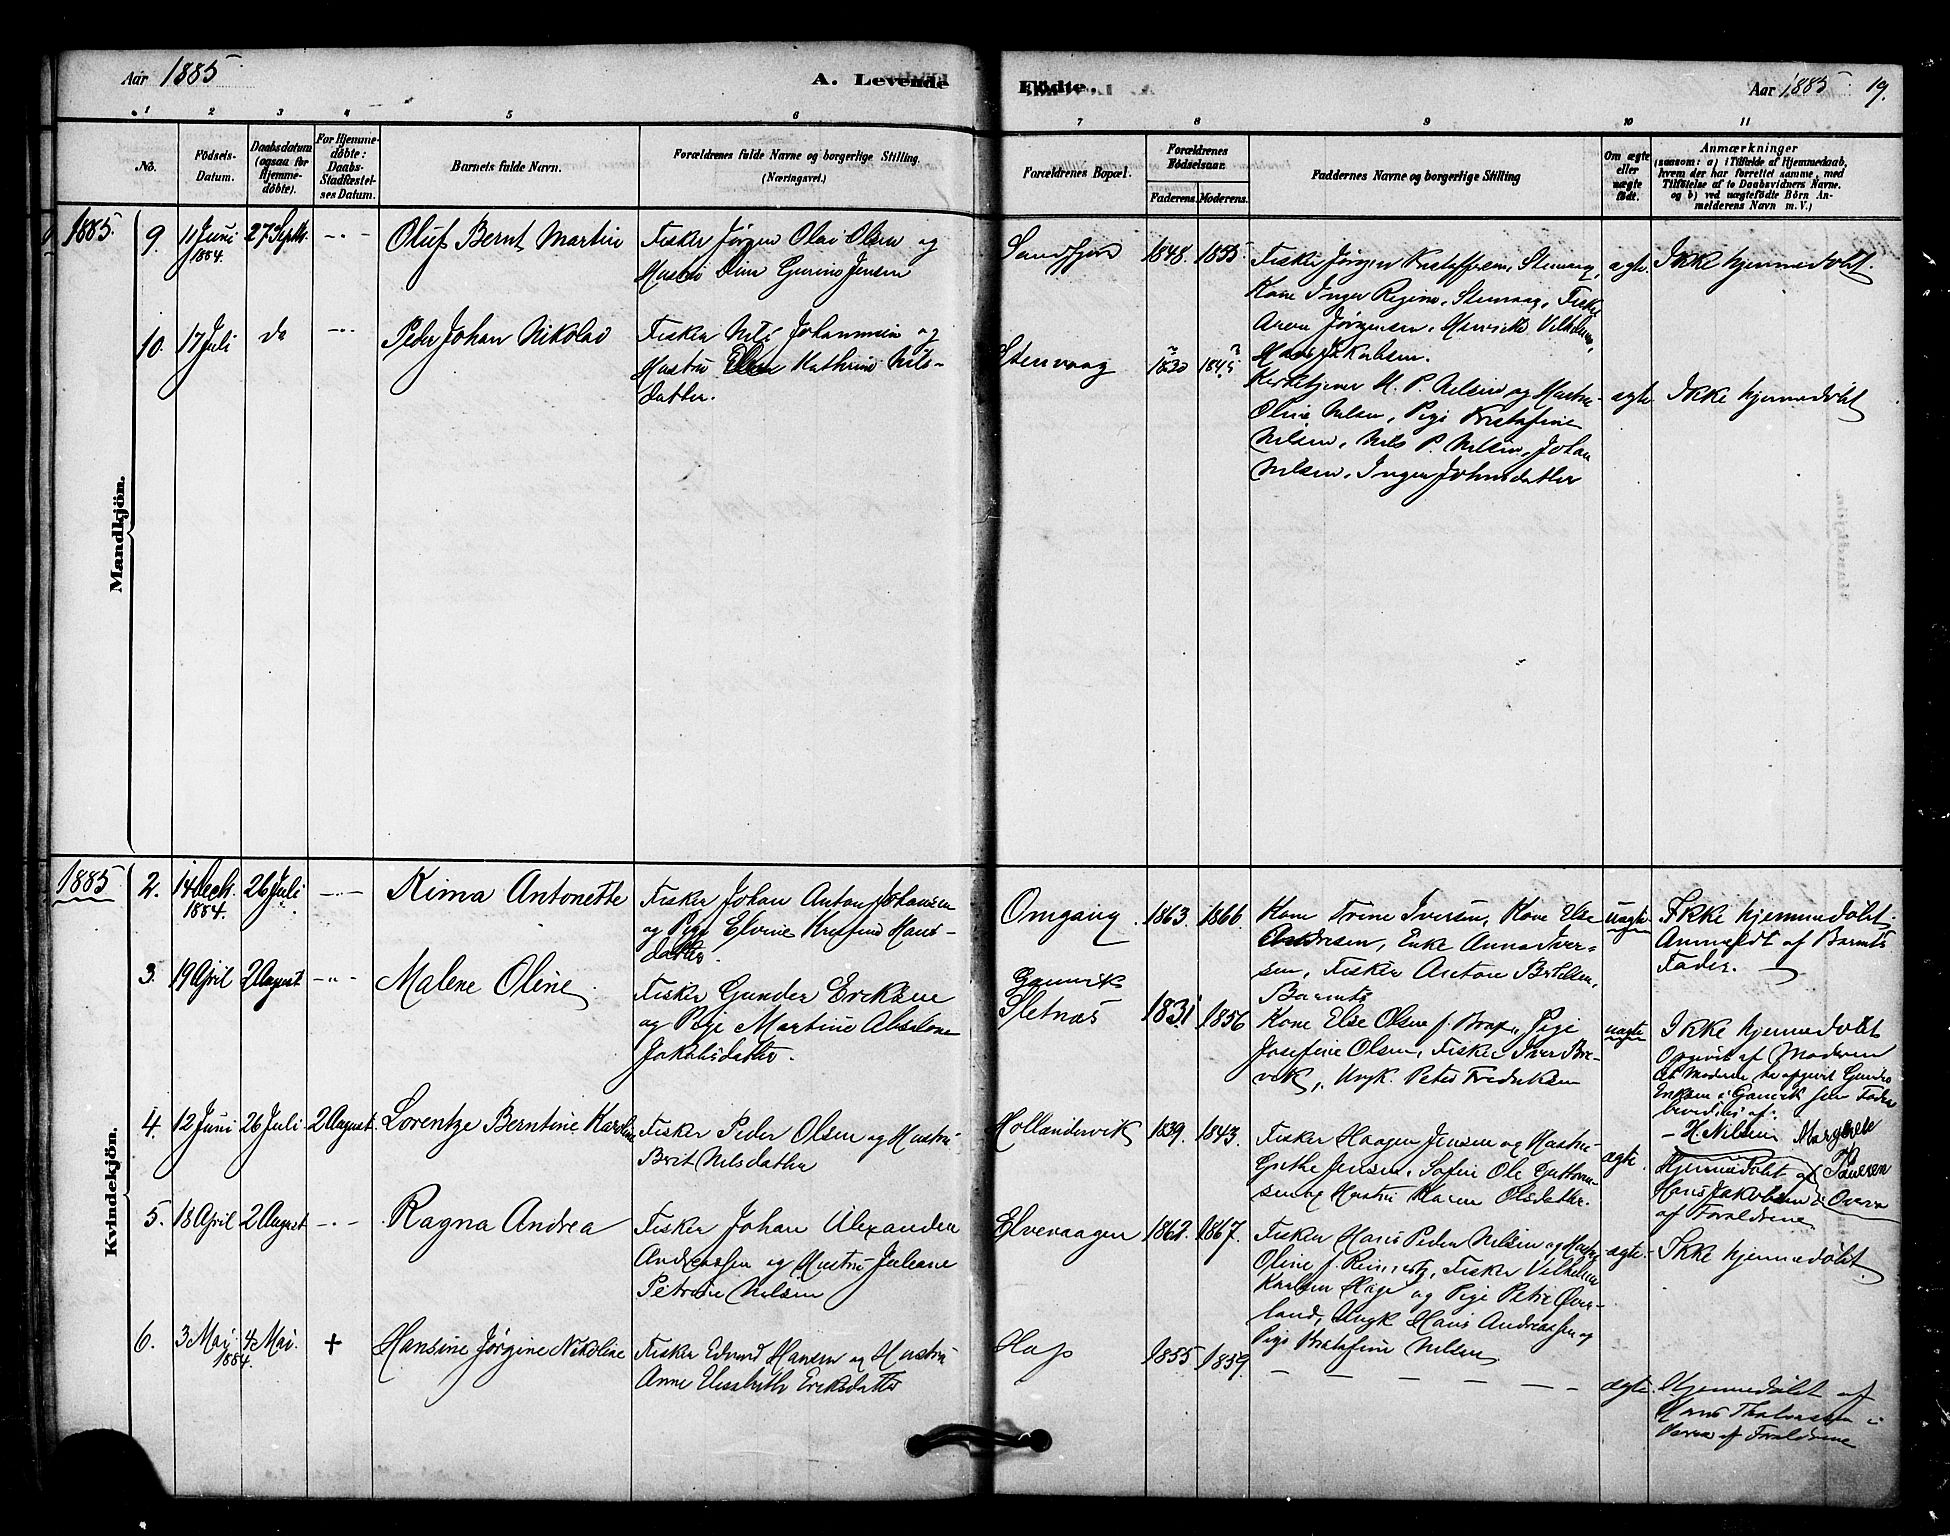 Aar 1885
A. Levende
Födte.
Aar 1885
19.
1 2 3 4 5 6 7 8 9 10 11
No.
Födsels-
Datum.
Daabsdatum
(ogsaa for
Hjemme-
döbte).
For Hjemme-
döbte:
Daabs-
Stadfæstel-
ses Datum.
Barnets fulde Navn.
Forældrenes fulde Navne og borgerlige Stilling.
(Næringsvei.)
Forældrenes Bopæl.
Forældrenes
Födselsaar.
Faderens.
Moderens.
Faddernes Navne og borgerlige Stilling
Om ægte
eller
uægte
födt.
Anmærkninger
(saasom: a) i Tilfælde af Hjemmedaab,
hvem der har forrettet samme, med
Tilföielse af to Daabsvidners Navne.
og b) ved uægtefödte Börn An-
melderens Navn m. V.)
Mandkjön.
1885.
9.
11 Juni
1884.
27 Septbr
Oluf Bernt Martin
Fisker Jørgen Olai Olsen og
Hustru Gurine Jensen
Sandfjord
1848.
1855.
Fisker Jørgen Kristoffersen, Stenvaag,
Kone Inger Regine, Stenvaag, Fisker
Aron Jørgensen,
Hans Jakobsen.
ægte.
Ikke hjemmedøbt.
10.
17 Juli
do
Peder Johan Nikolai
Fisker Nils Johannesen og
Hustru Ellen Kathrine Nils-
datter.
Stenvaag
1830
1845
Kirketjener H. P. Nilsen og Hustru
Oline Nilsen, Pige Kristofine
Nilsen, Nils P. Nilsen, Johan
Nilsen, Inger Johnsdatter
ægte.
Ikke hjemmedøbt
Kvindekjön.
1885
2.
14 Decb.
1884.
26 Juli
Kima Antonette
Fisker Johan Anton Johansen
og Pige Elvine Hans-
datter.
Omgang.
1863.
1866.
Kone Trine Iversen, Kone Else
Andresen, Enke Anna Iver-
sen, Fisker Anton Bertelsen,
uægte
Ikke hjemmedøbt.
Anmeldt af Barnets
Fader.
3.
19 April
2 August
Malene Oline
Fisker Gunder Eriksen
og Pige Martine Abelone
Jakobsdatter.
Gamvik
Sletnæs
1831
1856
Kone Else Olsen, Pige
Josefine Olsen, Fisker Iver Bre-
vik, Ungk. Peter Fredriksen
uægte
Ikke hjemmedøbt
Opgivet af Moderen
H. Nilsen Margrete
4.
12 Juni
26 Juli
2 August
Lorentze Berntine Karoline
Fisker Peder Olsen og Hustru
Berit Nilsdatter
Hollændervik
1839.
1843.
Fisker Haagen Jensen og Hustru
Grethe Jensen, Ole Guttorm-
sen og Hustru Karen Olsdatter.
ægte.
Hjemmedøbt af
Hans Jakobsen
af Forældrene
5.
18 April
2 August
Ragna Andrea
Fisker Johan Alexander
Andreassen og Hustru Juliane
Petrine Nilsen
Elvevaagen
1862.
1867.
Fisker Hans Peder Nilsen og Hustru
Oline f. Fisker Vilhelm
Karlsen Hop og Pige Petra Over-
land, Ungk Hans Andreassen og
Pige Kristofine Nilsen
ægte.
Ikke hjemmedøbt.
6.
3 Mai
1884.
4 Mai.
+
Hansine Jørgine Nikoline
Fisker Edvard Hansen og Hustru
Anne Elisabeth Eriksdatter
Hop
1855
1859.
ægte.
Hjemmedøbt af
Hans i
af Forældrene